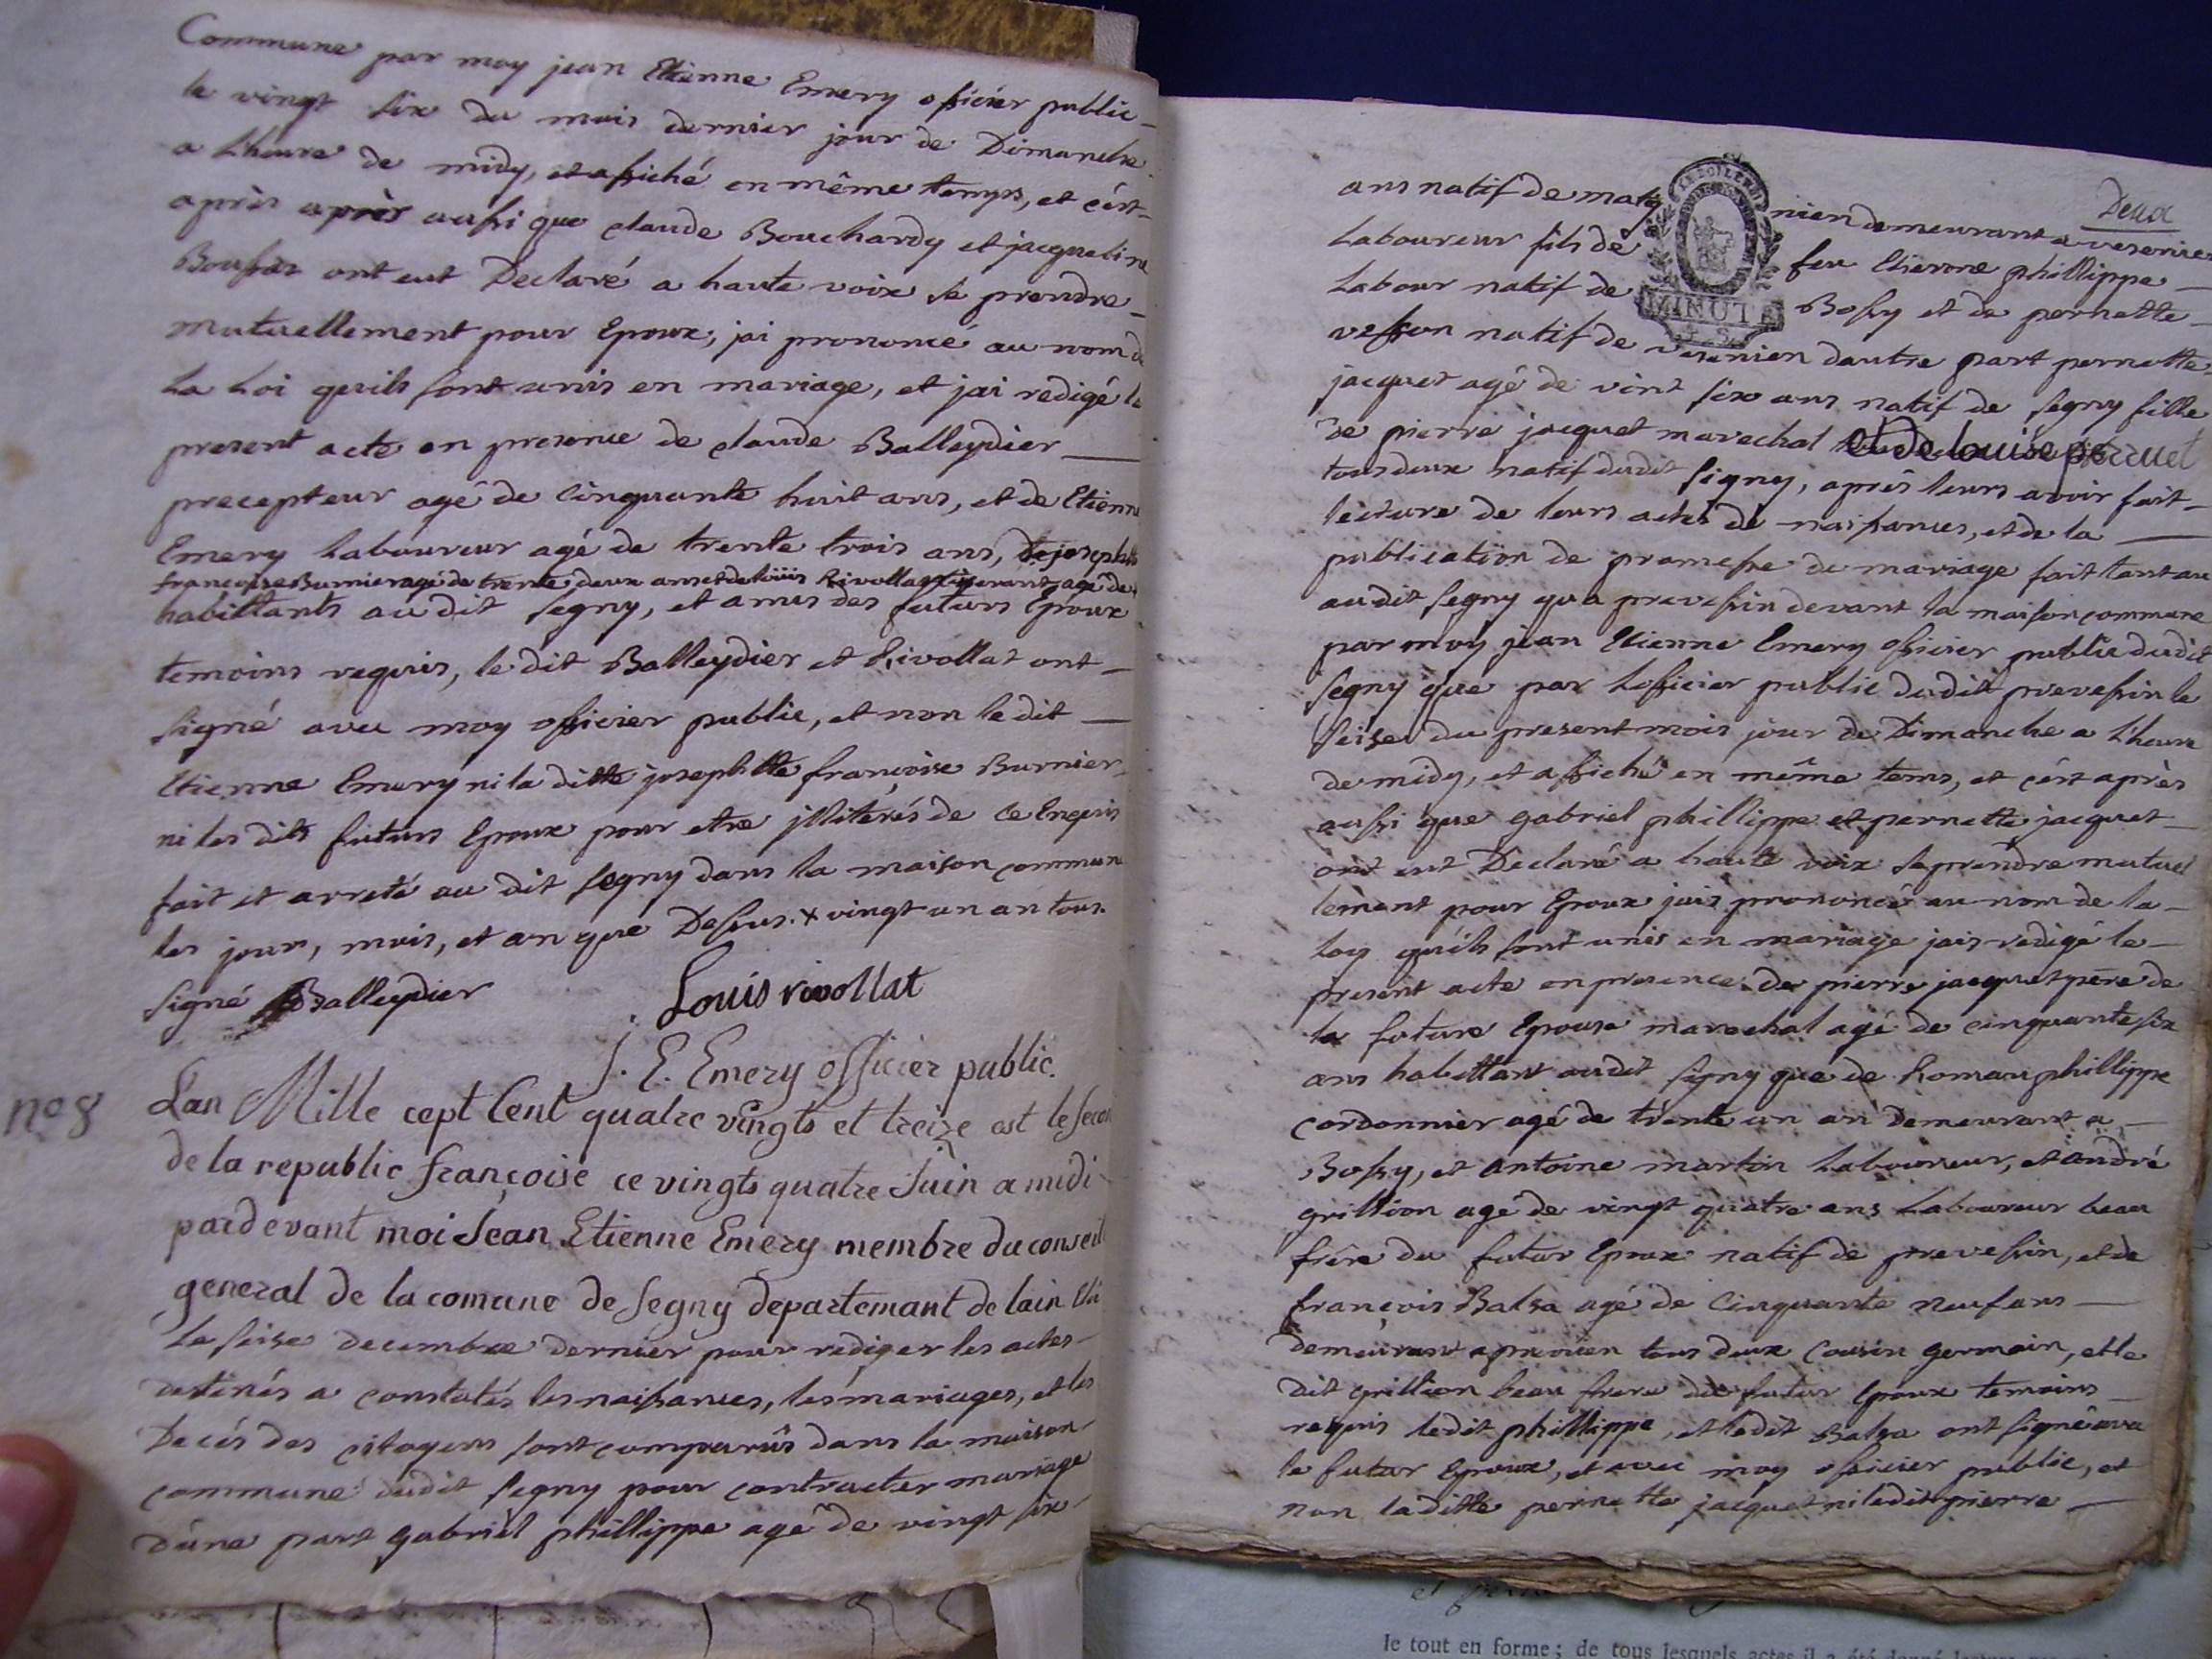 Commune par moy jean Etienne Emery officier public
le vingt six du mois dernier jour de Dimanche
a Lheure de midy, et affiché en même temps, et cért
après après aussi que claude Bouchardy et jacqueline
ont eut Declaré a haute voix se prendre
mutuellement pour Epoux, jai prononcé au nom de
la Loi quils sont unis en mariage, et jai redigé le
present acte en presence de claude Balleydier
precepteur agé de cinquante huit ans, et de Etienne
Emery laboureur agé de trente trois ans, de josephtte
françoise Burnier agé de trente deux ans et de loüis Rivollat agé de +
habittants au dit Segny, et amis des futurs Epoux
temoins requis, le dit Balleydier et Rivollat ont
signé avec moy officier public, et non le dit
Etienne Emery ni la ditte josephtte françoise Burnier
ni les dits futurs Epoux pour etre jllitérés de ce Enquis
fait et arreté au dit Segny dans la maison commune
les jour, mois, et an que Dessus. + vingt un an tous.
signé Balleydier Louis rivollat
J. E. Emery officier public.
no 8
Lan Mille cept Cent quatre vingts et treize est le secon
de la republic françoise ce vingts quatre Juin a midi
pardevant moi Jean Etienne Emery membre du conseil
general de la comune de Segny departemant de lain Elu
le seise decembre dernier pour rediger les actes
destinés a constatés les naissances, les mariages, et les
Decés des citoyens sont comparûs dans la maison
commune dudit Segny pour contracter mariage
Dune part gabriel phillippe agé de vingt six
Deux
ans natif de matignien demeurant a
Laboureur fils de feu Etienne phillippe
Labour natif de Bossy et de pernette
vesson natif de dautre part pernette
jacquet agé de vint six ans natif de Segny fille
de pierre jacquet marechal et de louise perruet
tous deux natif dudit Signy, après leurs avoir fait
lecture de leurs actes de naissances, et de la
publication de promesse de mariage fait tant au
audit Segny qu a prevessin devant la maison commune
par moy jean Etienne Emery officier public dudit
Segny que par Lofficier public dudit prevessin le
seise du present mois jour de Dimanche a Lheure
de midy, et affiché en même tems, et cért après
aussi que gabriel phillippe et pernette jacquet
ont eut Declaré a haute voix se prendre mutuel
lement pour Epoux jais prononcé au nom de la
loy quils sont unis en mariage jais redigé le
present acte en presence de pierre jacquet père de
la future Epouse marechal agé de cinquante six
ans habittant audit Signy que de Romanphillippe
cordonnier agé de trente un an Demeurant a
Bossy, et antoine martin Laboureur, et andré
grillion agé de vingt quatre ans Laboureur beau
frère du futur Epoux natif de prevessin, et de
françois Balsa agé de Cinquante neuf ans
demeurant a tous deux cousin germain, et le
dit grillion beau frere du futur Epoux temoins
requis ledit phillippe, et ledit Balsa ont signé avec
le futur Epoux, et avec moy officier public, et
non laditte pernette jacquet ni ledit pierre
le tout en forme ; de tous lesquels actes il a été donné lecture